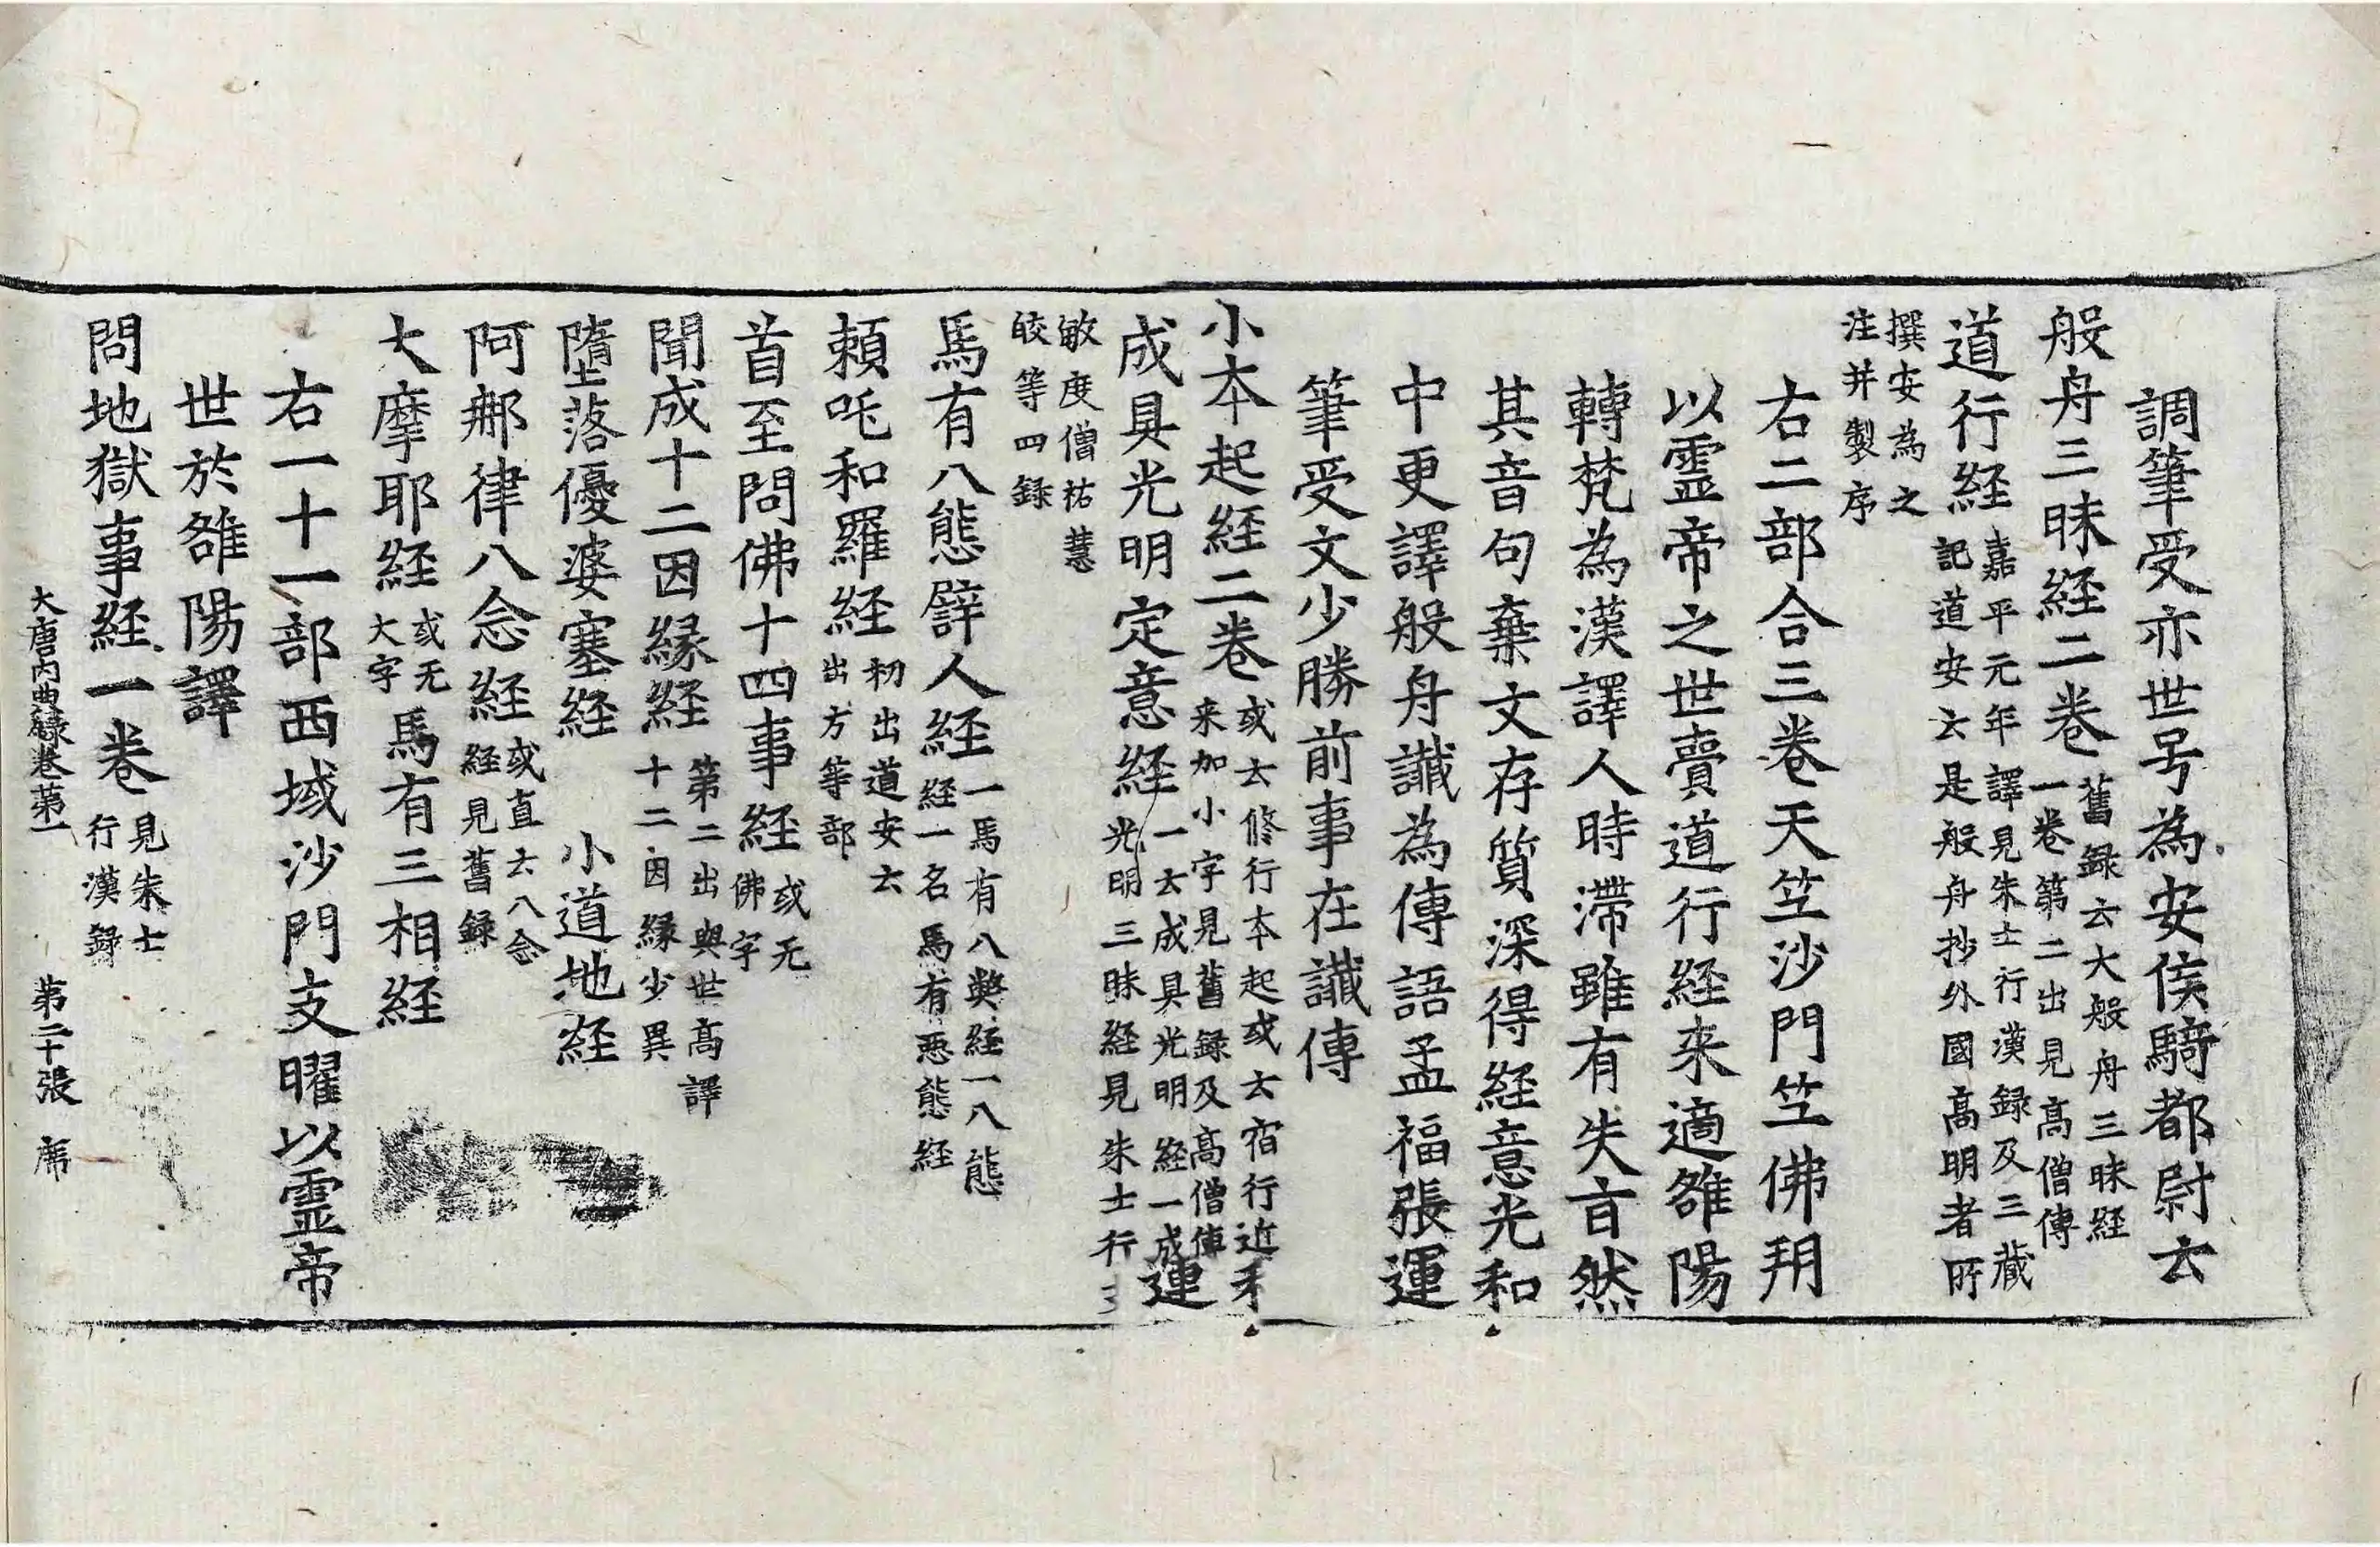 調筆受亦世号為安侯騎都尉云
般舟三昧経二卷舊録云大般舟三昧経一卷第二出見高僧傳
道行経嘉平元年譯見朱士行漢録及三藏記道安云是般舟抄外國高明者所
撰安為之注并製序
右二部合三卷天竺沙門竺佛朔
以霊帝之世賷道行経来適雒陽
轉梵為漢譯人時滯雖有失言然
其音句棄文存質深得経意光和
中更譯般舟讖為傳語孟福張運
筆受文少勝前事在讖傳
小本起経二卷或云修行本起或云宿行近来加小字見舊録及高僧傳
成具光明定意経一云成具光明経一成光明三昧経見朱士行
敏度僧祐慧皎等四録
馬有八態譬人経一馬有八弊経一八態経一名馬有悪態経
頼吒和羅経初出道安云出方等部
首至問佛十四事経或无佛字
聞成十二因縁経第二出與世高譯十二因縁少異
墮落優婆塞経 小道地経
阿那律八念経或直云八念経見舊録
大摩耶経或无大字馬有三相経
右一十一部西域沙門支曜以霊帝
世於雒陽譯
問地獄事経一卷見朱士行漢録
大唐内典録卷第一 第二十張 席